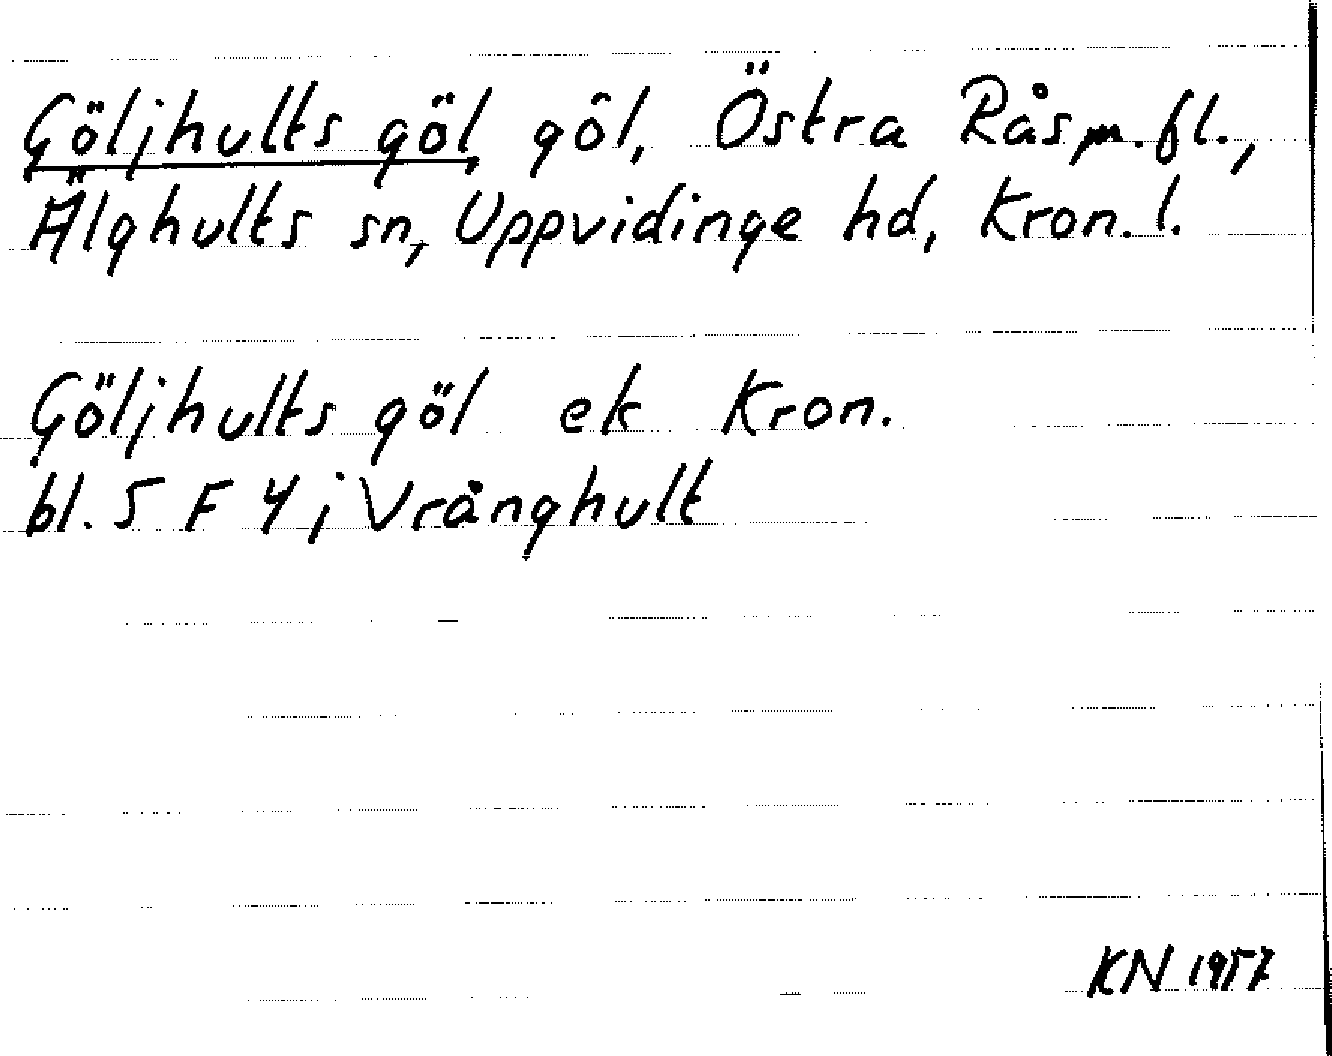 Göljhults göl, göl, Östra Rås m.fl.,
Älghults sn, Uppvidinge hd, Kron. l.
Göljhults göl ek Kron.
bl. 5 F 4 i Vrånghult
KN 1957